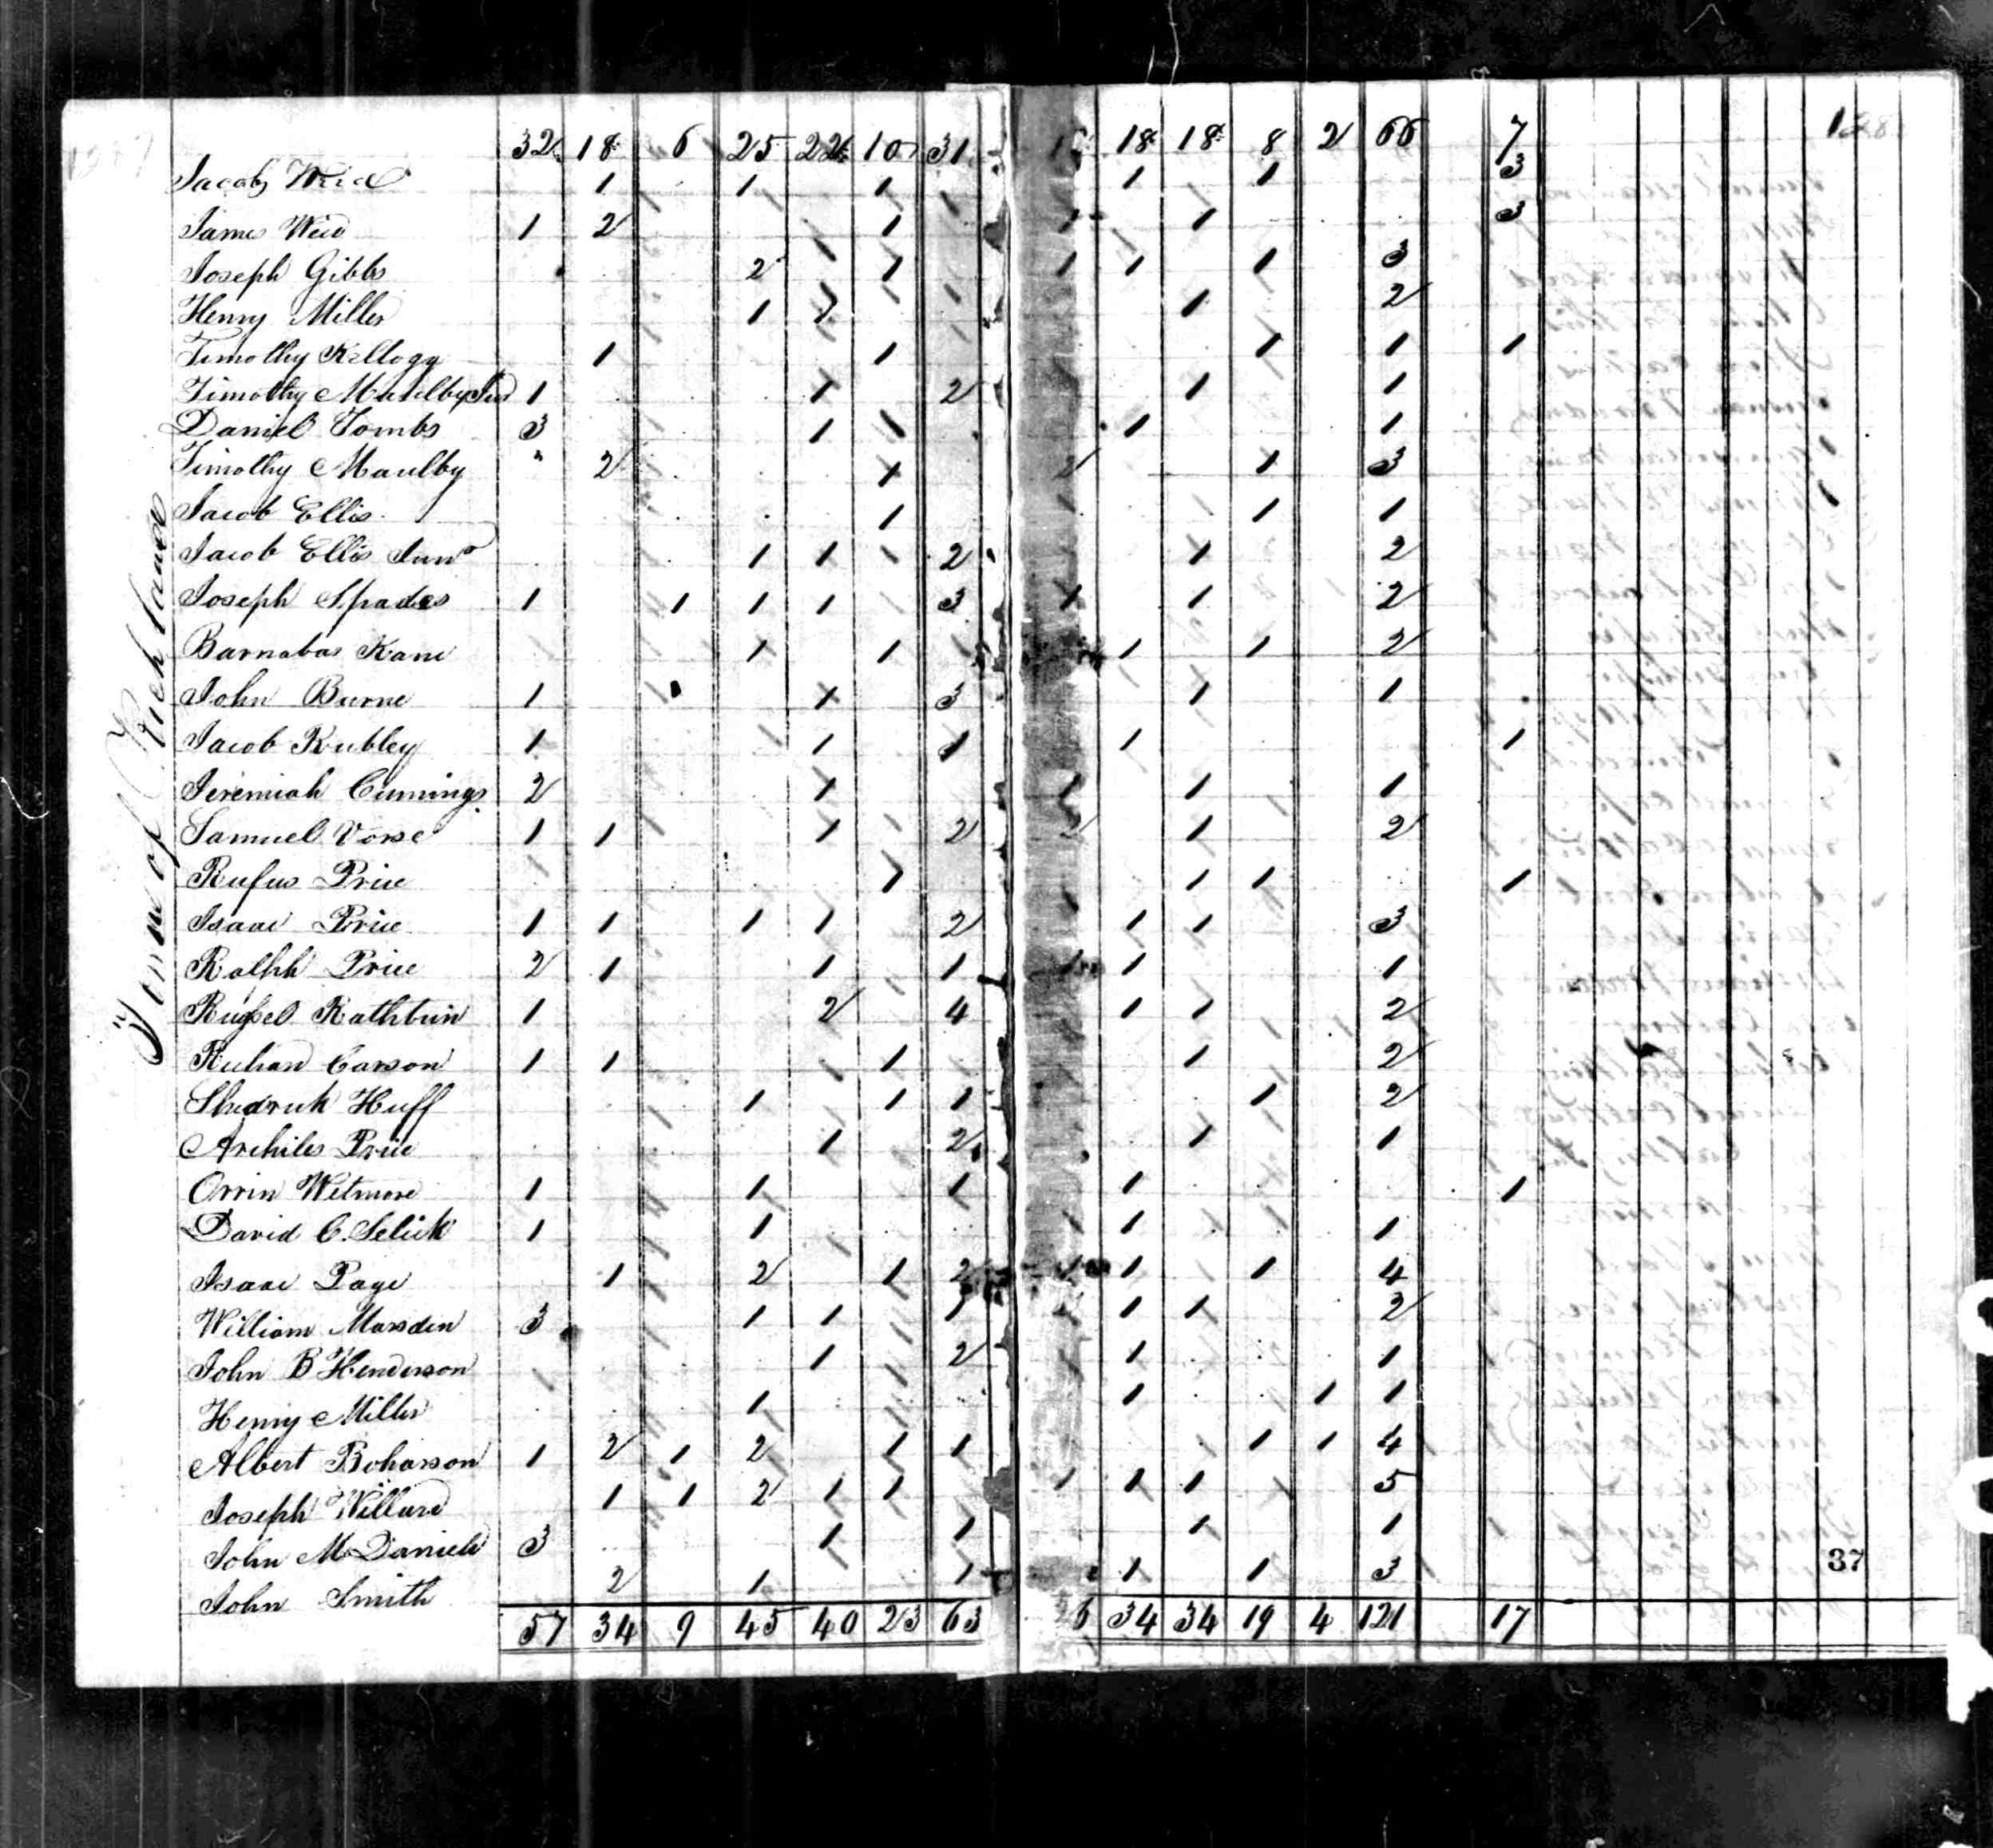 32 18 6 25 22 10 31 18 18 8 2 66 7
Jacob Weid 1 1 1 1 1 3
James Weid 1 2 1 1 1 3
Joseph Gibbs 2 1 1 1 1 3
Henry Miller 1 1 2
Timothy Kellogg 1 1 1 1 1
Timothy 1 1 2 1 1
Daniel Tombs 3 1 1 1 1
Timothy Maulby 2 1 2 1 3
Jacob Ellis 1 1 1
Jacob Ellis Junr 1 1 2 1 2
Joseph Spades 1 1 1 1 3 1 1 2
Barnabas Kane 1 1 1 1 2
John Burne 1 1 3 1 1
Jacob Rubley 1 1 1 1 1
Jeremiah Cumings 2 1 1 1 1
Samuel Vorse 1 1 1 2 2 1 2
Rufus Price 1 1 1 1
Isaac Price 1 1 1 1 2 1 1 3
Ralph Price 2 1 1 1 1 1 1
Russel Rathbun 1 2 4 1 1 2
Richard Carson 1 1 1 1 2
Shedrick Huff 1 1 1 1 2
Archiles Price 1 2 1 1
Orrin Wetmore 1 1 1 1 1
David C. Selick 1 1 1 1
Isaac Page 1 2 1 2 1 1 1 4
William Marsden 3 1 1 1 1 1 2
John B Henderson 1 2 1 1
Henry Miller 1 1 1 1
Albert Boharson 1 2 1 2 1 1 1 1 4
Joseph Willard 1 1 2 1 1 1 1 1 5
John McDaniels 3 1 1 1 1
John Smith 2 1 1 1 1 3
57 34 9 45 40 23 63 6 34 34 19 4 121 17
Town of Richland
37